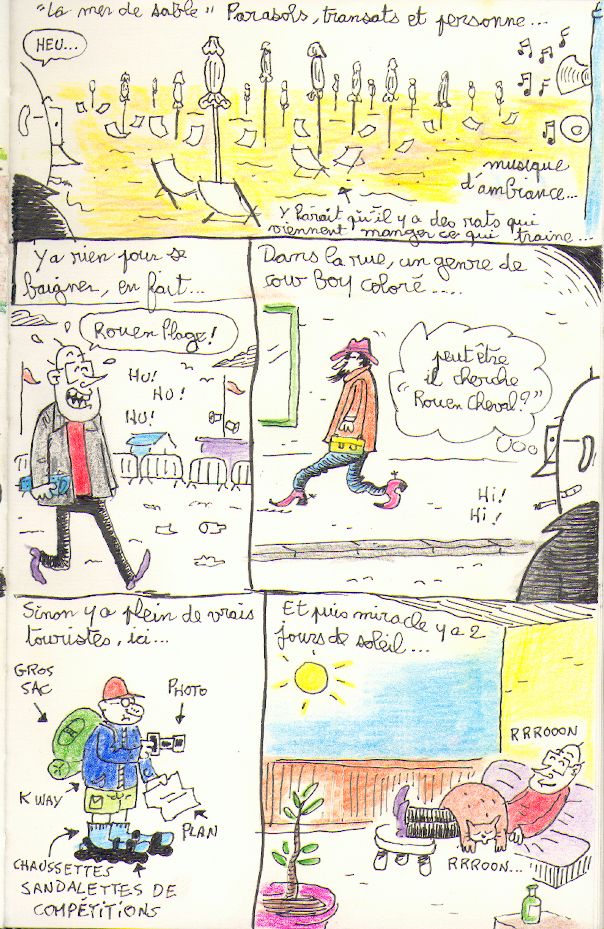 "La mer de sable" Parasols, transats et personne...
HEU...
musique
d'ambiance...
Y Paraît qu'il y a des rats qui
viennent manger ce qui traine...
Y a rien pour se
baigner, en fait...
Rouen Plage!
HU!
HU!
HU!
Dans la rue, un genre de
cow Boy coloré....
peut être
il cherche
"Rouen Cheval?"
Hi!
Hi!
Sinon y a plein de vrais
touristes, ici...
GROS
SAC
PHOTO
K WAY
PLAN
CHAUSSETTES
SANDALETTES DE
COMPÉTITIONS
Et puis miracle y a 2
jours de soleil...
RRROOON
RRROON...